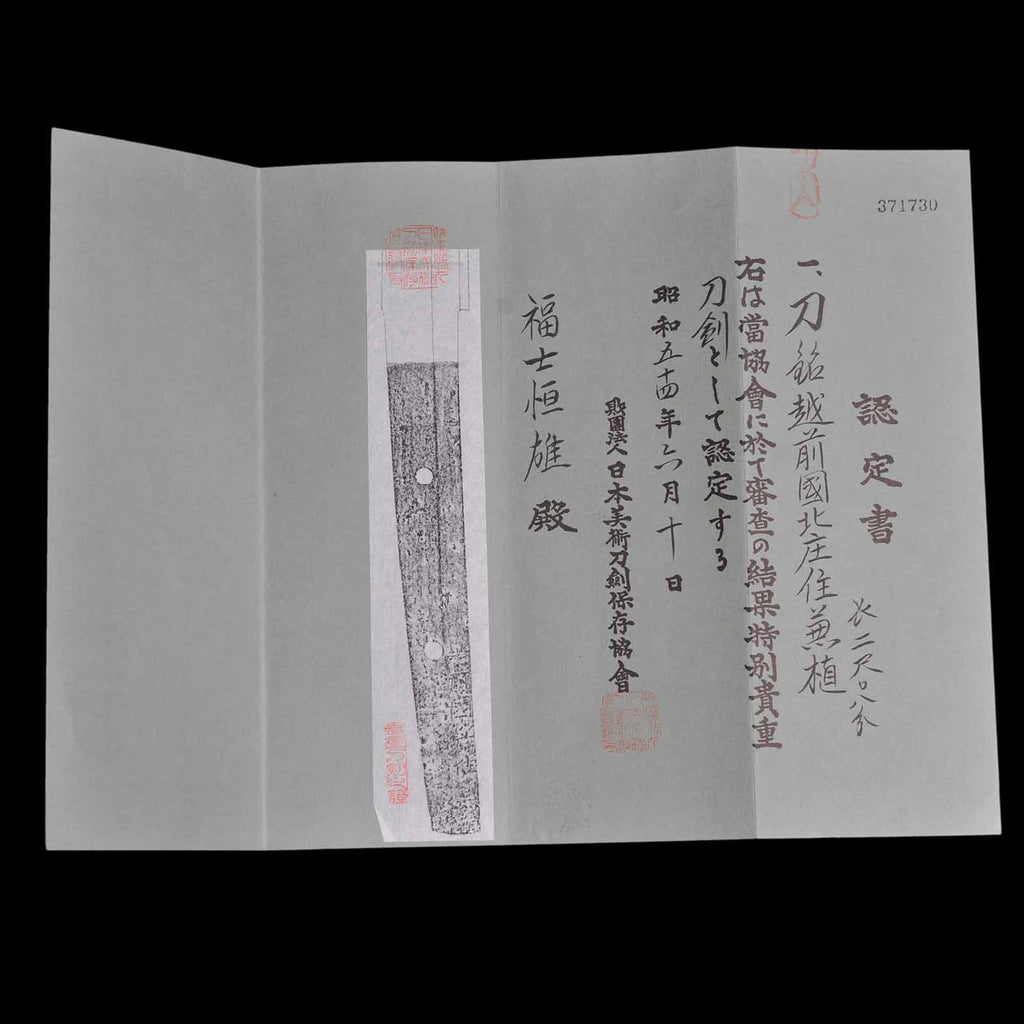 371730
認定書
一、刀 銘 越前國北庄住兼植
長二尺〇八分
右は當協會に於て審査の結果特別貴重
刀劍として認定する
昭和五十四年六月十日
財團法人 日本美術刀劍保存協會
福士恒雄 殿